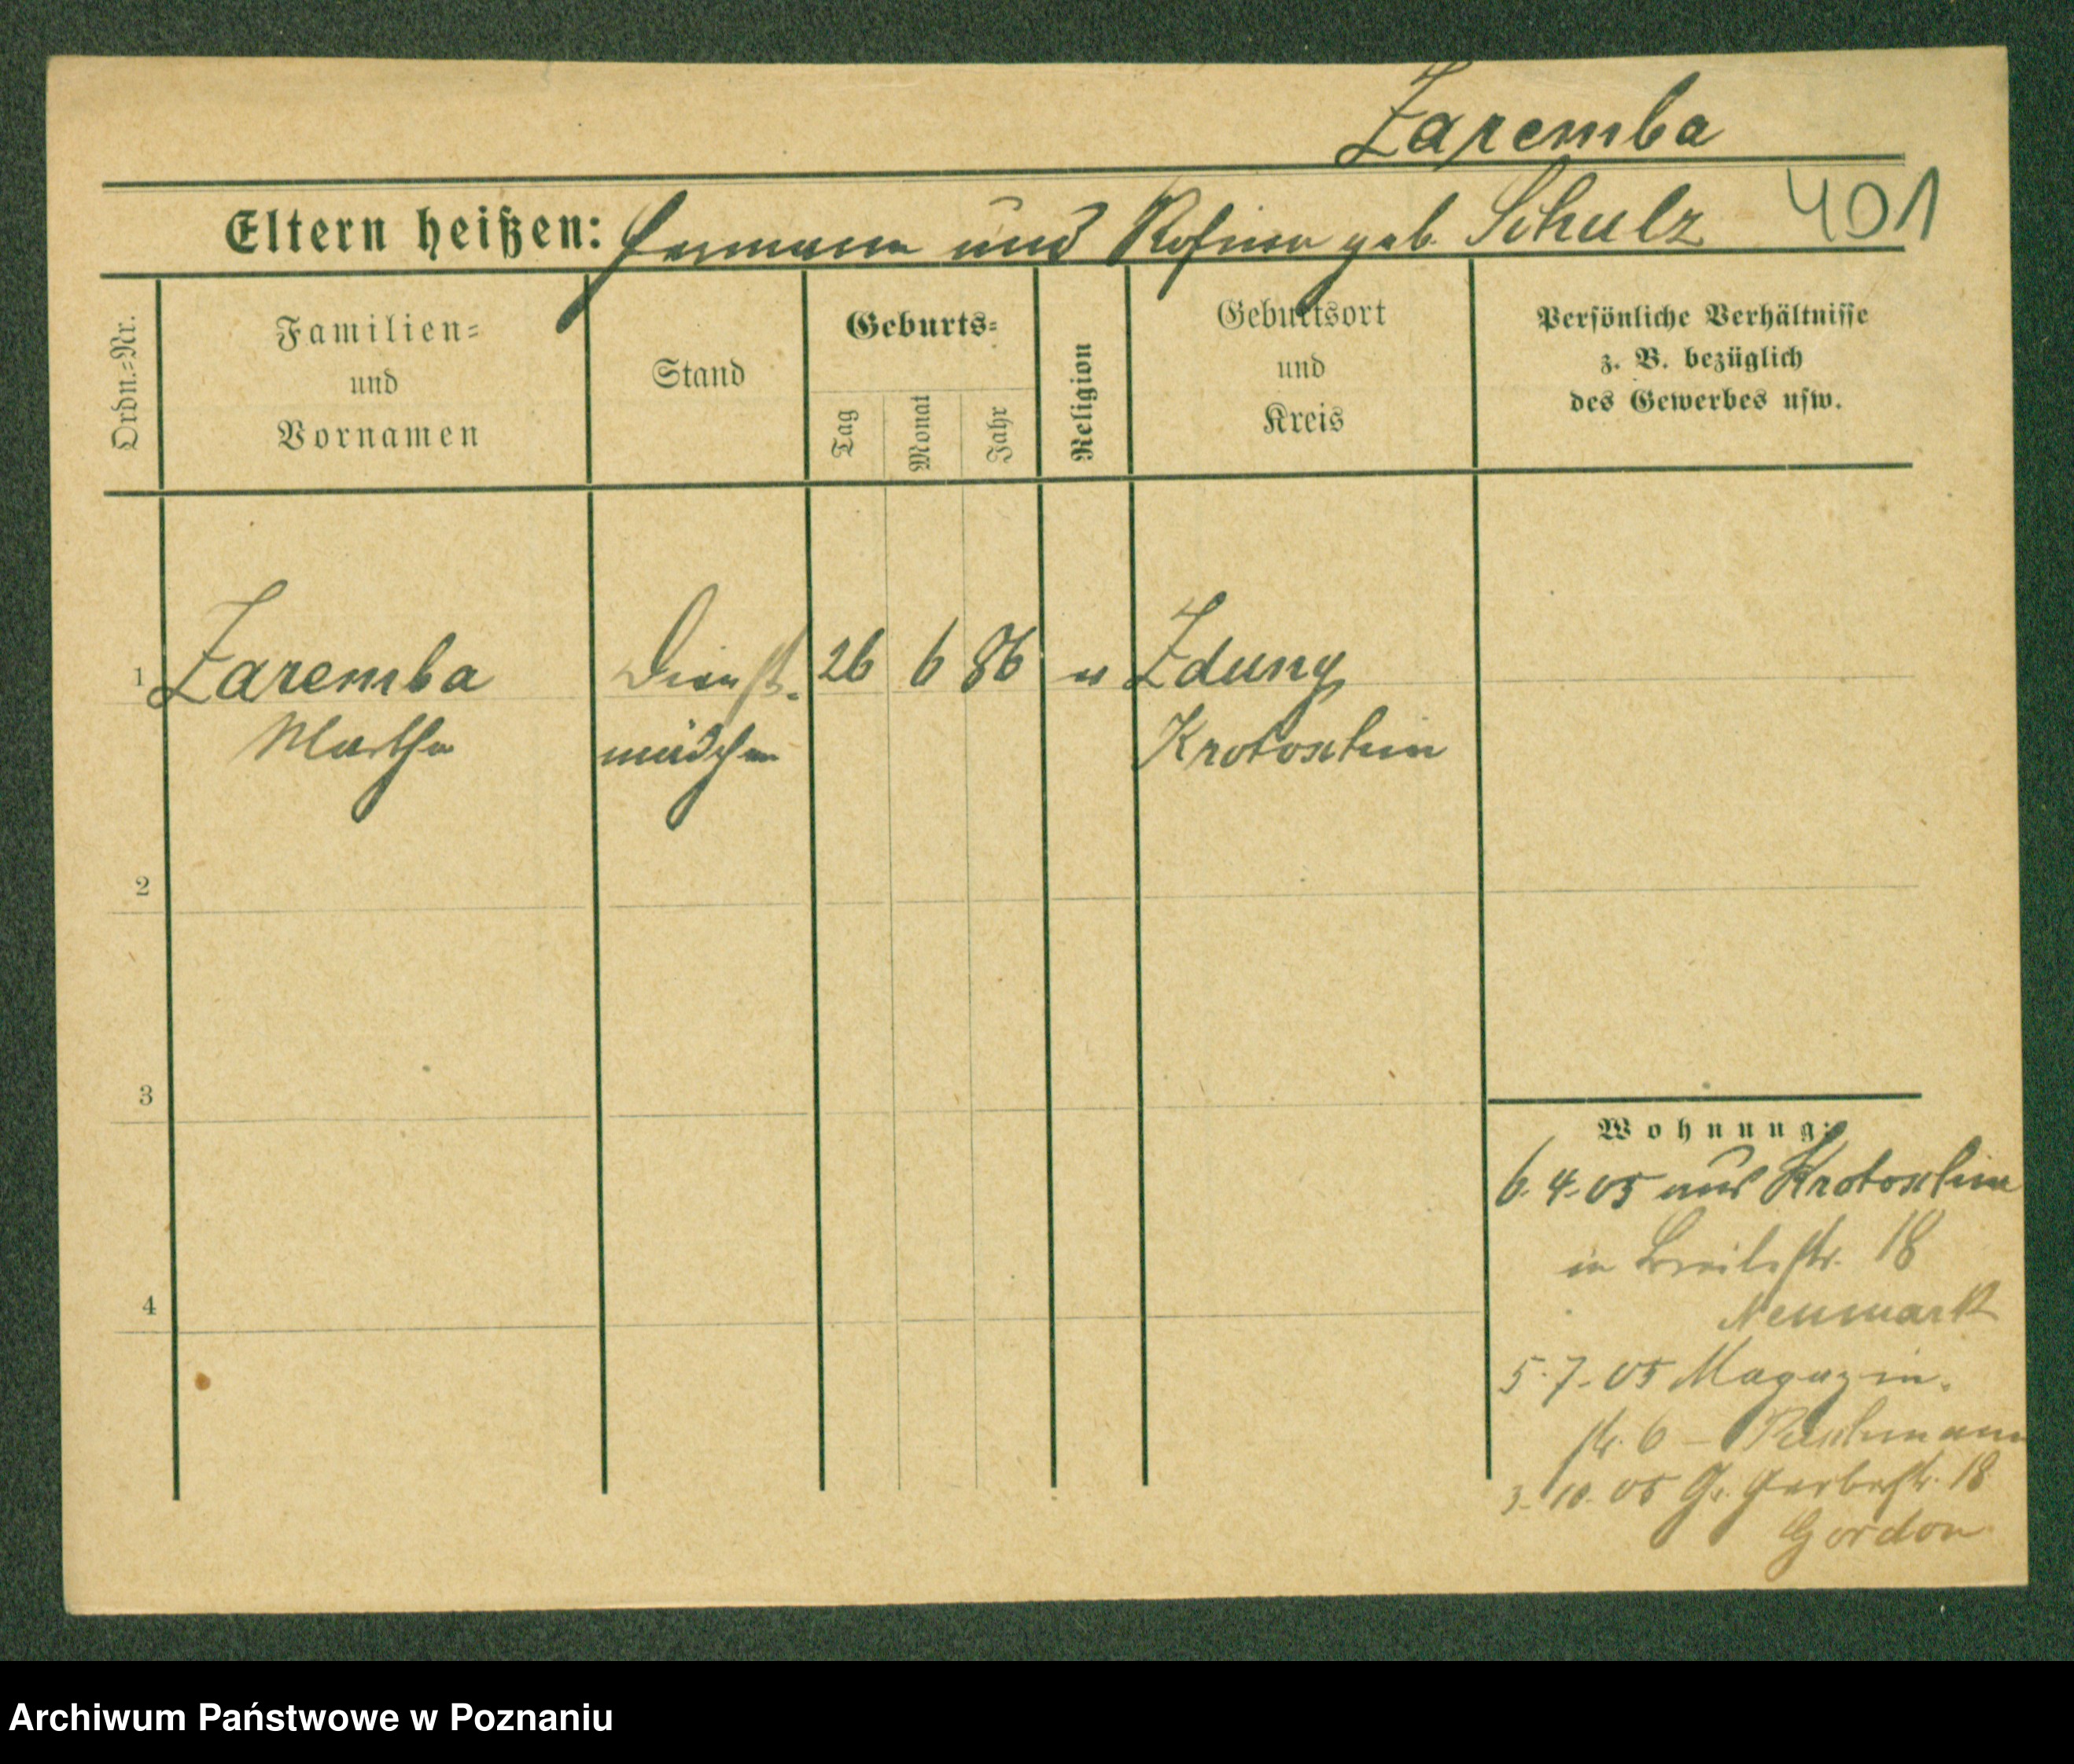 Zaremba
Eltern heißen: Hermann und Rosina geb. Schulz 401
Ordn.=Nr.
Familien=
und
Vornamen
Stand
Geburts=
Tag
Monat
Jahr
Religion
Geburtsort
und
Kreis
Persönliche Verhältnisse
z. B. bezüglich
des Gewerbes usw.
1 Zaremba Dienst- 26 6 86 Zduny
Martha mädchen Krotoschin
2
3
4
Wohnung:
6.4.05 aus Krotoschin
in Breitestr. 18
Neumark
5.7.05 Magazin-
str. 6 –
3.10.05 Gr. Gerberstr. 18
Gordon
Archiwum Państwowe w Poznaniu